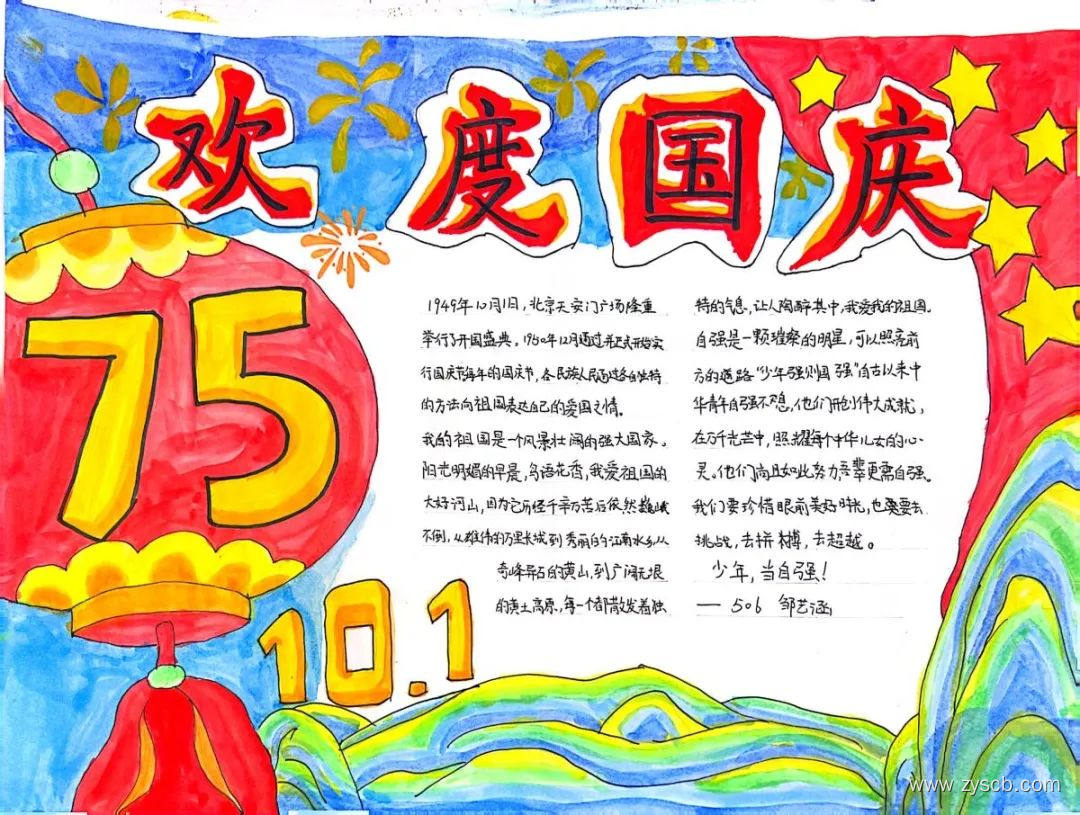 欢度国庆
75
10.1
1949年10月1日，北京天安门广场隆重
举行了开国盛典。1950年12月通过并正式开始实
行国庆节每年的国庆节，各民族人民通过各自独特
的方法向祖国表达自己的爱国之情。
我的祖国是一个风景壮阔的强大国家。
阳光明媚的早晨，鸟语花香，我爱祖国的
大好河山，因为它历经千辛万苦后依然巍峨
不倒，从雄伟的万里长城到秀丽的江南水乡从
奇峰异石的黄山，到广阔无垠
的黄土高原，每一个都散发着独
特的气息，让人陶醉其中，我爱我的祖国。
自强是一颗璀璨的明星，可以照亮前
方的道路“少年强则国强”自古以来中
华青年自强不息，他们开创伟大成就，
在万千光芒中，照耀每个中华儿女的心
灵。他们尚且如此努力吾辈更需自强。
我们要珍惜眼前美好时光，也要去
挑战，去拼搏，去超越。
少年，当自强！
— 506 邹艺涵
www.zyscb.com